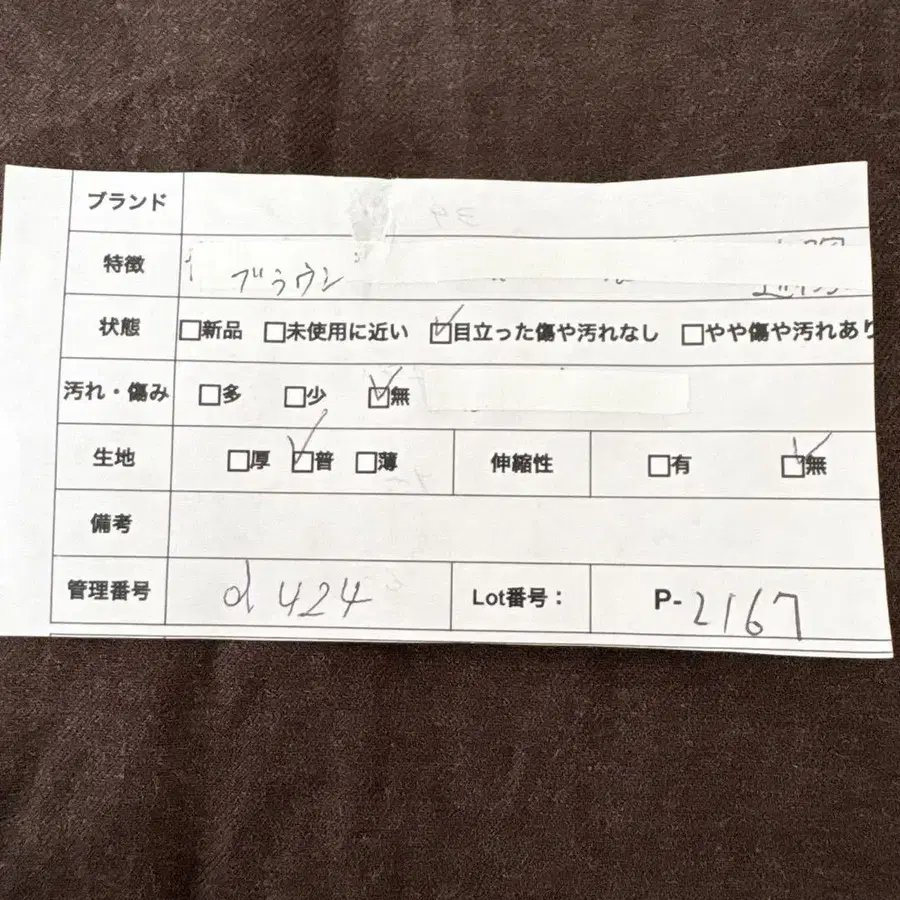 ブランド
特徴 ブラウン
状態 □新品 □未使用に近い ☑目立った傷や汚れなし □やや傷や汚れあり
汚れ・傷み □多 □少 ☑無
生地 □厚 ☑普 □薄 伸縮性 □有 ☑無
備考
管理番号 d424 Lot番号： P-2167